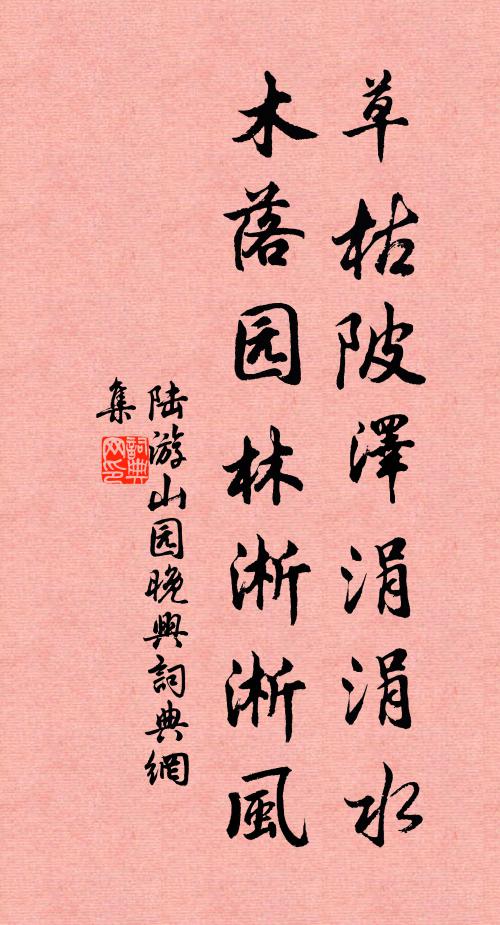 草枯陂澤涓涓水
木落园林淅淅風
陆游山园晚興詞典網
集
詞典
网印